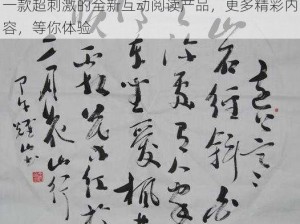 一款超刺激的全新互动阅读产品，更多精彩内
容，等你体验
远上寒
石径斜白
深处有人家
车坐爱枫
霜叶红于
二月花山行